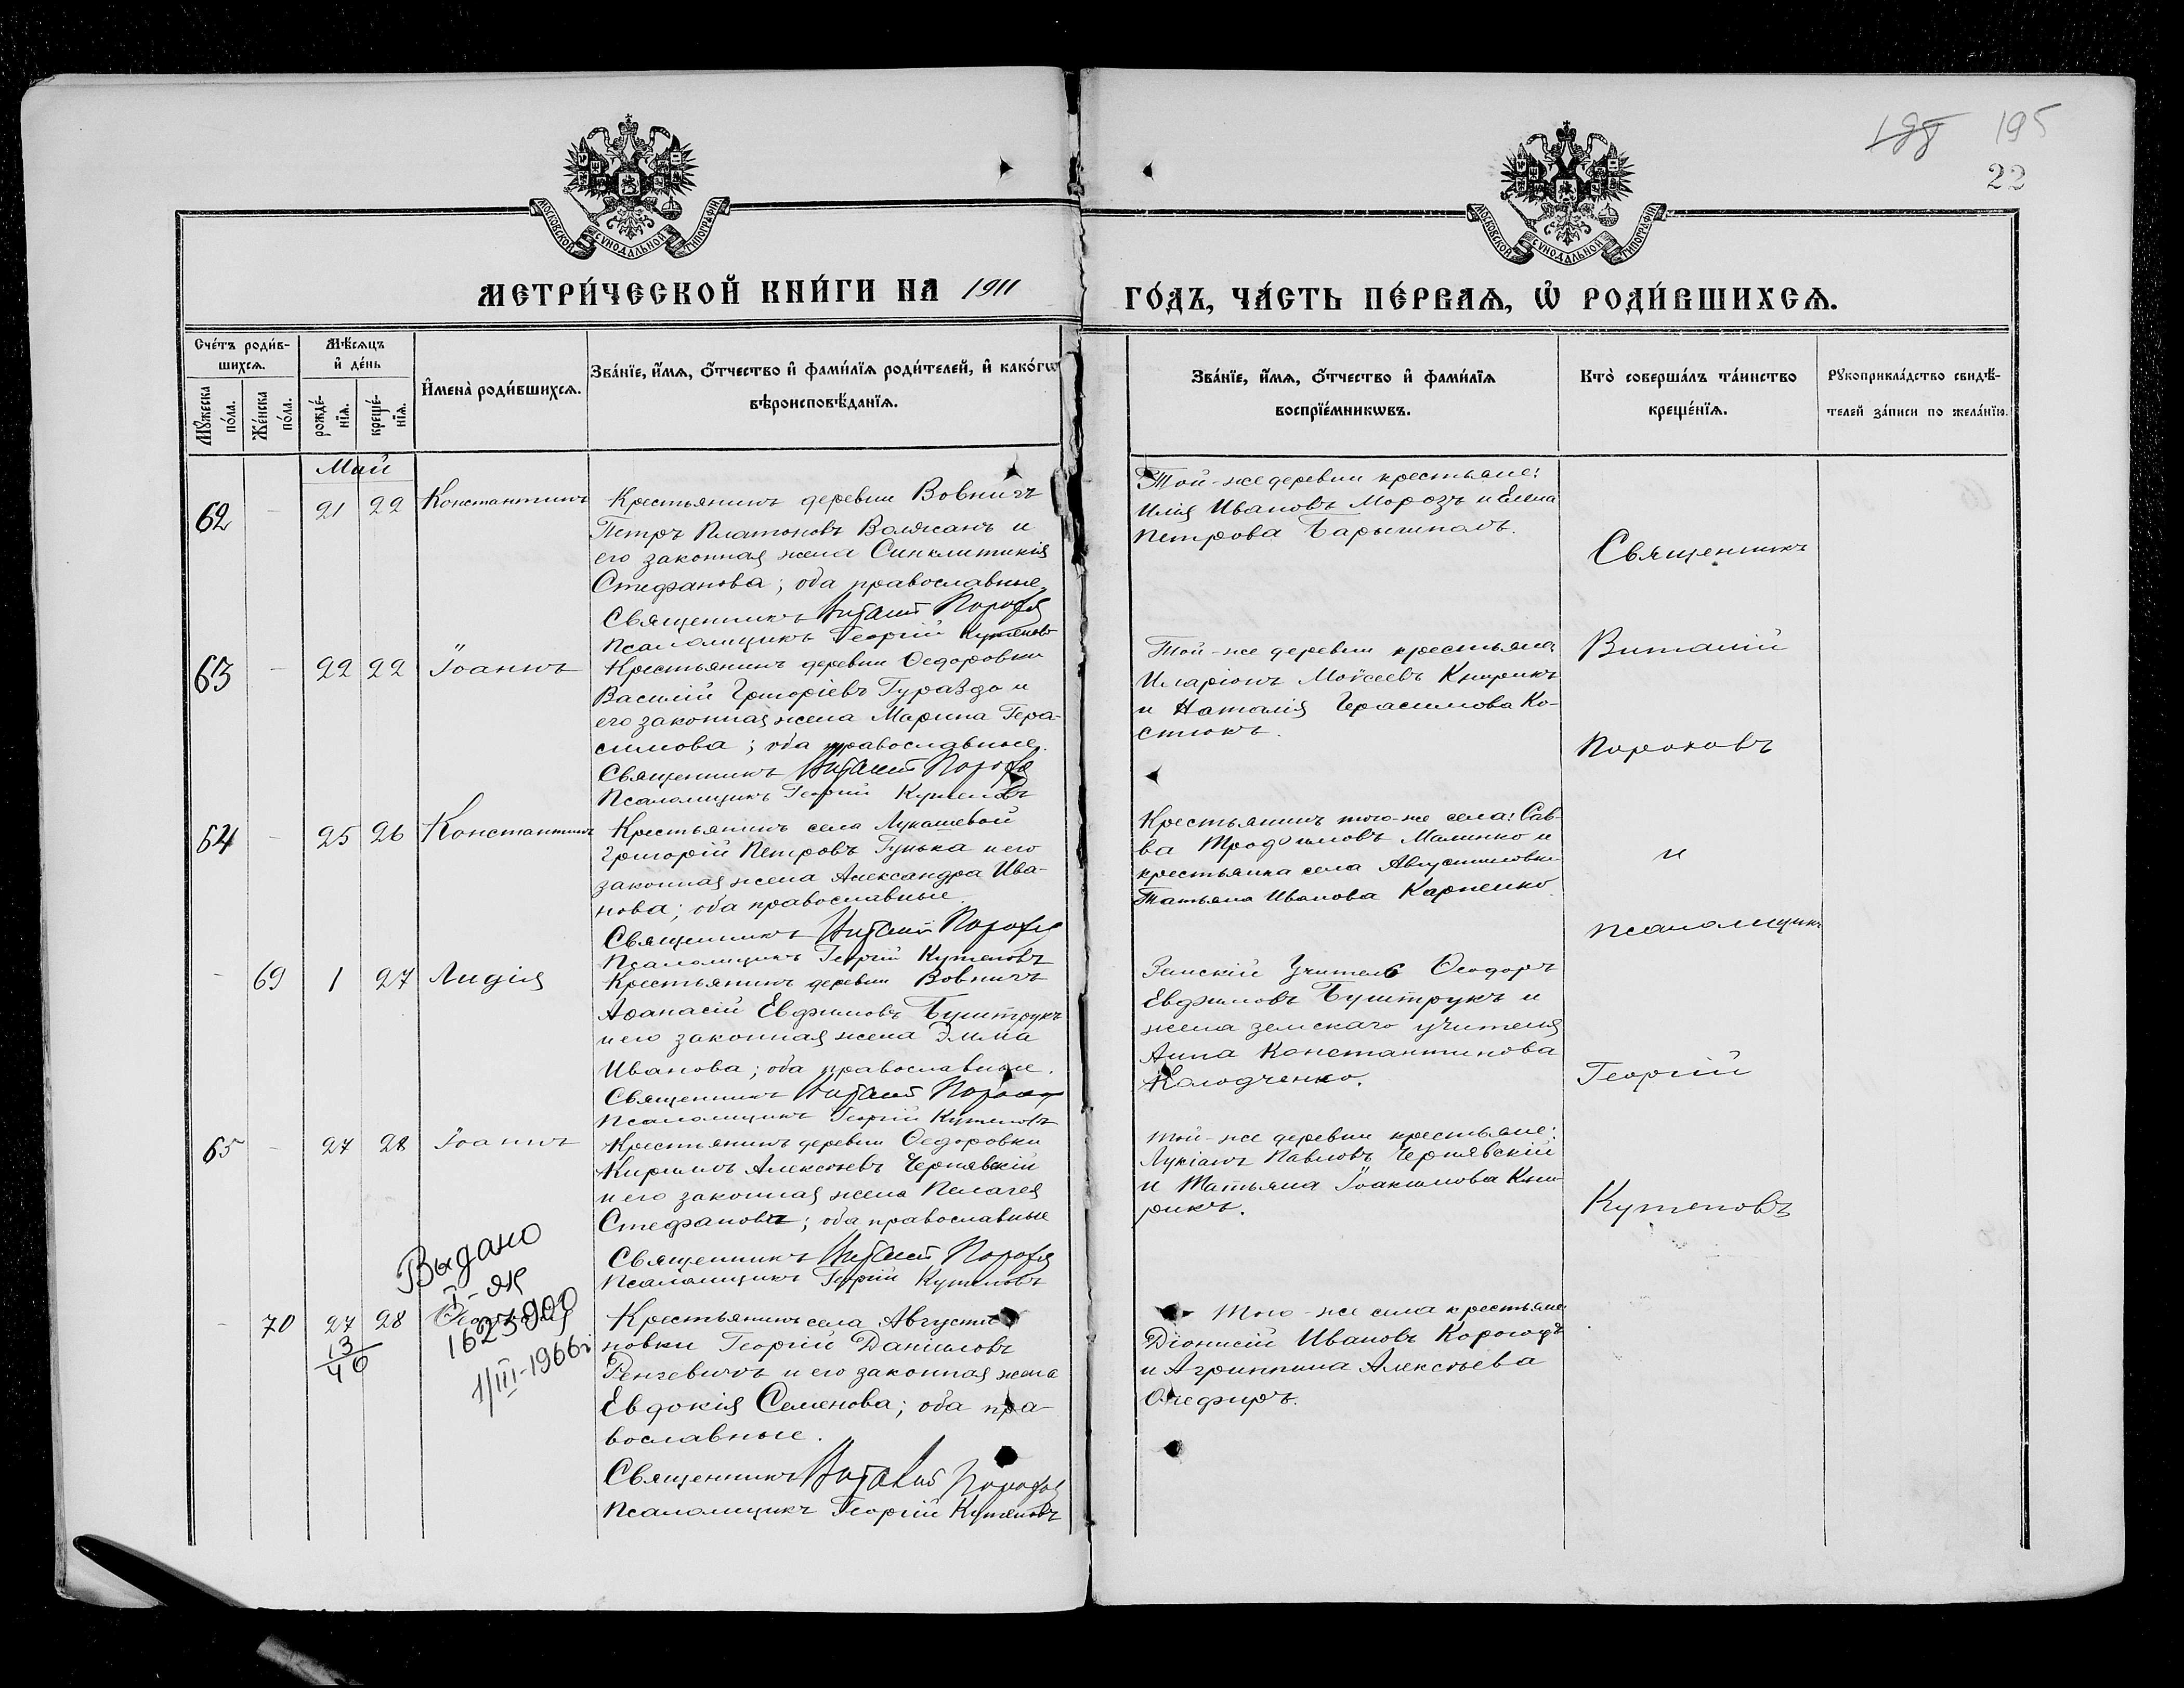 195
22
МОСКОВСКОЙ СѴНОДАЛЬНОЙ ТИПОГРАФІИ
МОСКОВСКОЙ СѴНОДАЛЬНОЙ ТИПОГРАФІИ
МЕТРИ́ЧЕСКОЙ КНИ́ГИ НА 1911
ГО́ДЪ, ЧА́СТЬ ПЕ́РВАѦ, Ѽ РОДИ́ВШИХСѦ.
Сче́тъ роди́в-
шихсѧ.
Мѣ́сѧцъ
и҆ де́нь
И҆мена̀ роди́вшихсѧ.
Зва́нїе, и҆́мѧ, ѻ҆́тчество и҆ фами́лїѧ роди́телей, и҆ како́гѡ
вѣроисповѣ́данїѧ.
Мꙋ́жеска
по́ла.
Же́нска
по́ла.
рожде́-
нїѧ.
креще́-
нїѧ.
Зва́нїе, и҆́мѧ, ѻ҆́тчество и҆ фами́лїѧ
воспрїе́мникѡвъ.
Кто̀ соверша́лъ та́инство
креще́нїѧ.
Рꙋкоприкла́дство свидѣ́-
телей за́писи по жела́нїю.
Май
62 - 21 22 Константинъ
Крестьянинъ деревни Вовничъ
Петръ Платоновъ Волясанъ и
его законная жена Синклитикія
Стефанова; оба православные
Священникъ Виталій
Псаломщикъ Георгій Кутеповъ
Той-же деревни крестьяне:
Илія Ивановъ Морозъ и Елена
Петрова Барышполъ.
63 - 22 22 Іоаннъ
Крестьянинъ деревни Ѳедоровки
Василій Григоріевъ Гураздо и
его законная жена Марина Гера-
симова; оба православные.
Священникъ Виталій
Псаломщикъ Георгій Кутеповъ
Той-же деревни крестьяне
Иларіонъ Моѵсеевъ Книрикъ
и Наталія Герасимова Ко-
стюкъ.
64 - 25 26 Константинъ
Крестьянинъ села Лукашевой
Григорій Петровъ Гунька и его
законная жена Александра Ива-
нова; оба православные.
Священникъ Виталій
Псаломщикъ Георгій Кутеповъ
Крестьянинъ того-же села: Сав-
ва Трофимовъ Малинко и
крестьянка села Августиновки
Татьяна Иванова Карпенко
- 69 1 27 Лидія
Крестьянинъ деревни Вовничъ
Аѳанасій Евфимовъ Буштрукъ
и его законная жена Эмма
Иванова; оба православные.
Священникъ Виталій
Псаломщикъ Георгій Кутеповъ
Земскій Учитель Ѳеодоръ
Евфимовъ Буштрукъ и
жена земскаго учителя
Анна Константинова
Колодченко.
65 - 27 28 Іоаннъ
Крестьянинъ деревни Ѳедоровки
Кириллъ Алексѣевъ Чернявскій
и его законная жена Пелагея
Стефанова; оба православные
Священникъ Виталій
Псаломщикъ Георгій Кутеповъ
Той-же деревни крестьяне:
Лукіанъ Павловъ Чернявскій
и Татьяна Іоакимова Кни-
рикъ.
- 70 27 28
13
46
Выдано
I-ЯК
1623900
1/III-1966г
Крестьянинъ села Августи-
новки Георгій Даніиловъ
Ренгевичъ и его законная жена
Евдокія Семенова; оба пра-
вославные.
Священникъ Виталій
Псаломщикъ Георгій Кутеповъ
Того-же села крестьяне
Діонисій Ивановъ Корогодъ
и Агриппина Алексѣева
Олефиръ.
Священникъ
Виталій
Пороховъ
и
псаломщикъ
Георгій
Кутеповъ